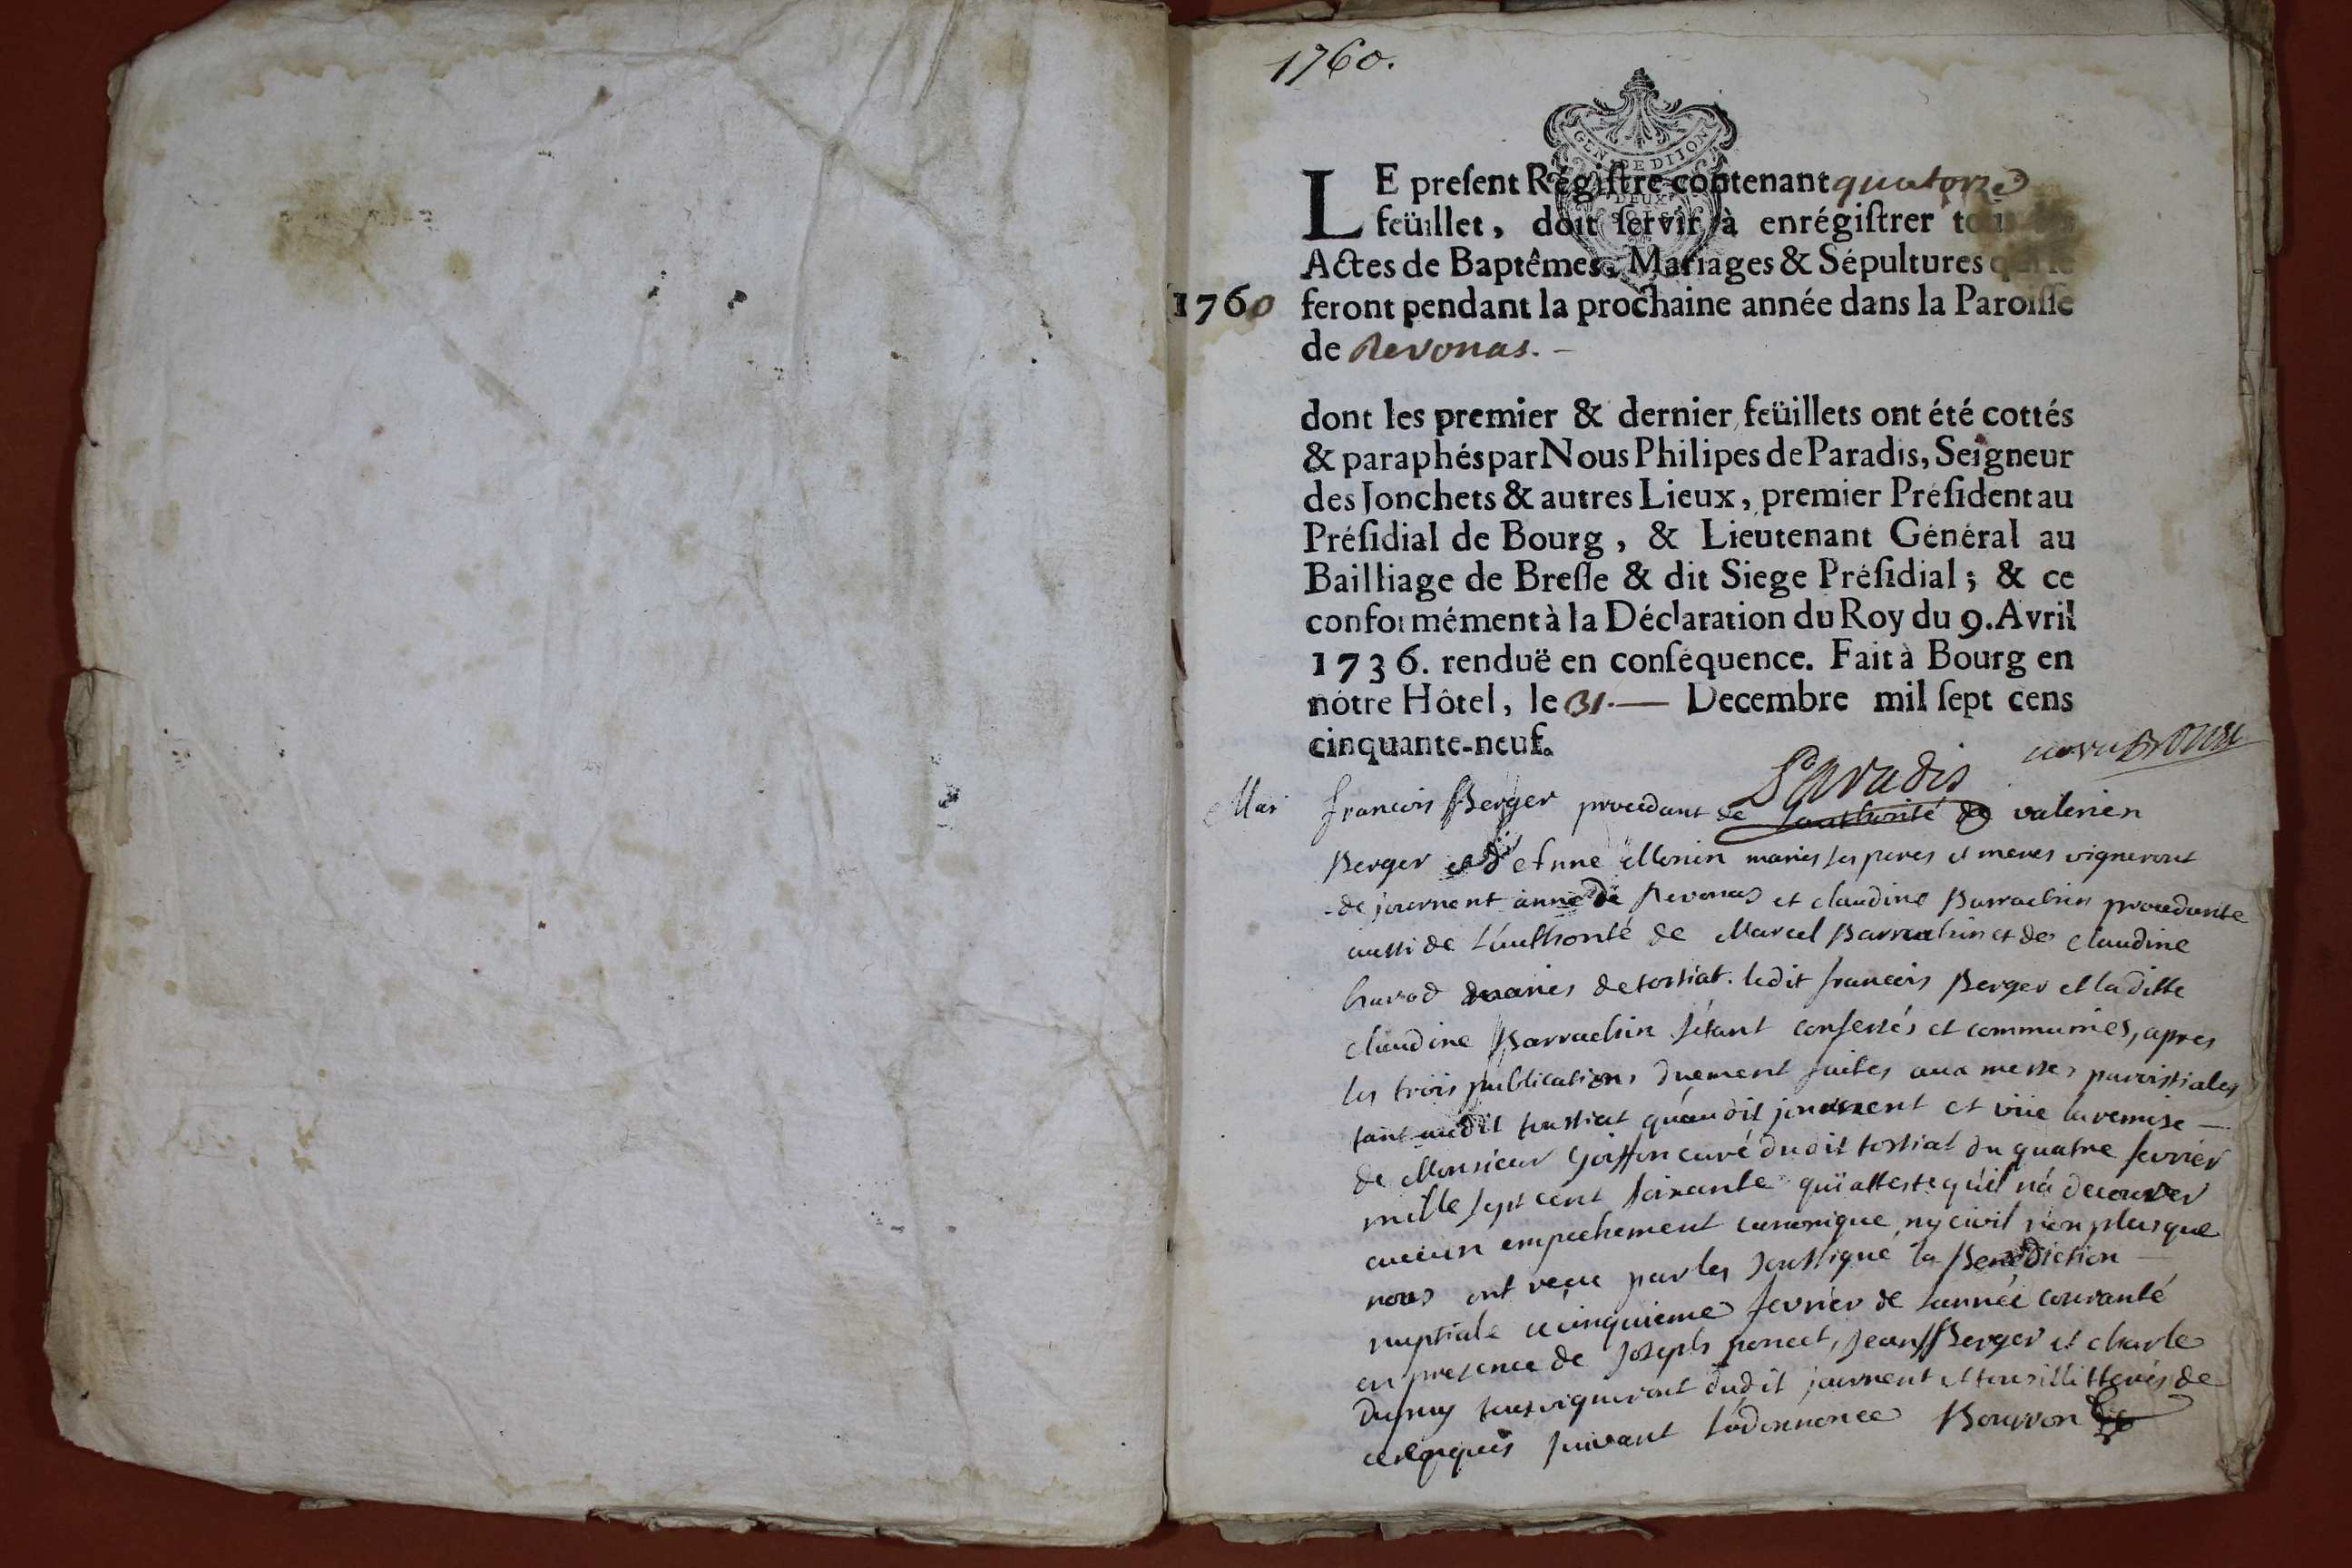 1760.
GEN. DE DIJON
DEUX
SOLS
LE preſent Régiſtre contenant quatorze
feüillet, doit ſervir à enrégiſtrer tous les
Actes de Baptêmes, Mariages & Sépultures qui ſe
1760 feront pendant la prochaine année dans la Paroiſſe
de Revonas. -
dont les premier & dernier feüillets ont été cottés
& paraphés par Nous Philipes de Paradis, Seigneur
des Jonchets & autres Lieux, premier Préſident au
Préſidial de Bourg, & Lieutenant Général au
Bailliage de Breſſe & dit Siege Préſidial; & ce
conformément à la Déclaration du Roy du 9. Avril
1736. renduë en conſéquence. Fait à Bourg en
nótre Hôtel, le 31. — Decembre mil ſept cens
cinquante-neuf.
Paradis
Mar francois Berger procedant de Lauthorité de valerien
Berger et d'Anne Monin maries ses peres et meres vigneront
de journent annè de Revonas et claudine Barrachin procedante
aussi de Lauthorité de Marcel Barrachin et de claudine
maries de tossiat. ledit francois Berger et laditte
claudine Barrachin s'étant confessés et communiés, apres
les trois publications duement faites aux messes paroissiales
tant audit toussiat qu'audit journent et vüe la remise —
de Monsieur Goiffon curé dudit tossiat du quatre fevriér
mille sept cent soixante qui atteste qu'il n'a decouver
aucun empechement canonique, ny civil non plus que
nous ont reçu par les soussigné la Benediction —
nuptiale ce cinquieme fevrier de l'année couranté
en presence de Joseph poncet, Jean Berger et charle
Dupuy tous vigneront dudit journent et tous illitterés de
ce enquis suivant l'ordonnence Bourron